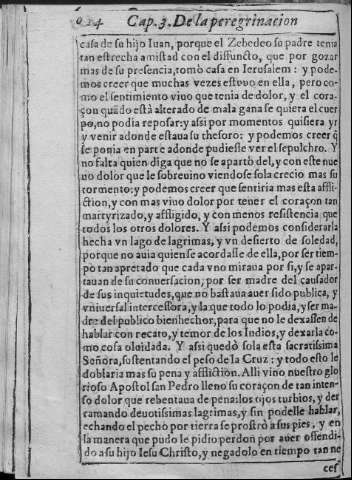 024 Cap. 3. De la peregrinacion
casa de su hijo Iuan, porque el Zebedeo su padre tenia
tan estrecha amistad con el diffuncto, que por gozar
mas de su presencia, tomò casa en Ierusalem: y pode-
mos creer que muchas vezes estuvo en ella, pero co-
mo el sentimiento vivo que tenia de dolor, y el cora-
çon quãdo està alterado de mala gana se quieta el cuer
po, no podia reposar; y assi por momentos quisiera yr
y venir adonde estaua su thesoro: y podemos creer q̃
se ponia en parte adonde pudiesse ver el sepulchro. Y
no falta quien diga que no se apartò del, y con este nue
uo dolor que le sobreuino viendose sola crecio mas su
tormento: y podemos creer que sentiria mas esta affli-
ction, y con mas vivo dolor por tener el coraçon tan
martyrizado, y affligido, y con menos resistencia que
todos los otros dolores. Y assi podemos considerarla
hecha vn lago de lagrimas, y vn desierto de soledad,
porque no auia quien se acordasse de ella, por ser tiem-
po tan apretado que cada vno miraua por si, y se apar-
tauan de su conuersacion, por ser madre del causador
de sus inquietudes, que no bastaua auer sido publica, y
vniuersal intercessora, y la que todo lo podia, y ser ma-
dre del publico bienhechor, para que no le dexassen de
hablar con recato, y temor de los Iudios, y dexarla co-
mo cosa oluidada. Y assi quedò sola esta sacratissima
Señora, sustentando el peso de la Cruz: y todo esto le
doblaria mas su pena y affliction. Alli vino nuestro glo
rioso Apostol san Pedro lleno su coraçon de tan inten-
so dolor que rebentaua de pena: los ojos turbios, y der
ramando deuotissimas lagrimas, y sin podelle hablar,
echando el pecho por tierra se prostrò a sus pies, y en
la manera que pudo le pidio perdon por auer offendi-
do a su hijo Iesu Christo, y negadolo en tiempo tan ne
ces